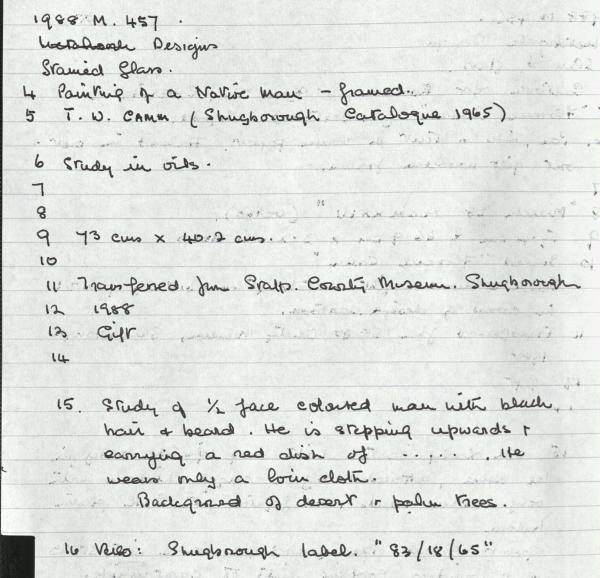 1988 M. 457.
Designs
Stained Glass.
4 Painting of a Native man - framed.
5 T. W. CAMM (Shugborough Catalogue 1965)
6 Study in oils.
7
8
9 73 cms x 40.2 cms.
10
11 Transferred from Staffs. County Museum. Shugborough
12 1988
13 Gift
14
15. Study of ½ face coloured man with black
hair & beard. He is stepping upwards &
carrying a red dish of ...... He
wears only a loin cloth.
Background of desert & palm trees.
16 Verso: Shugborough label. "83/18/65"